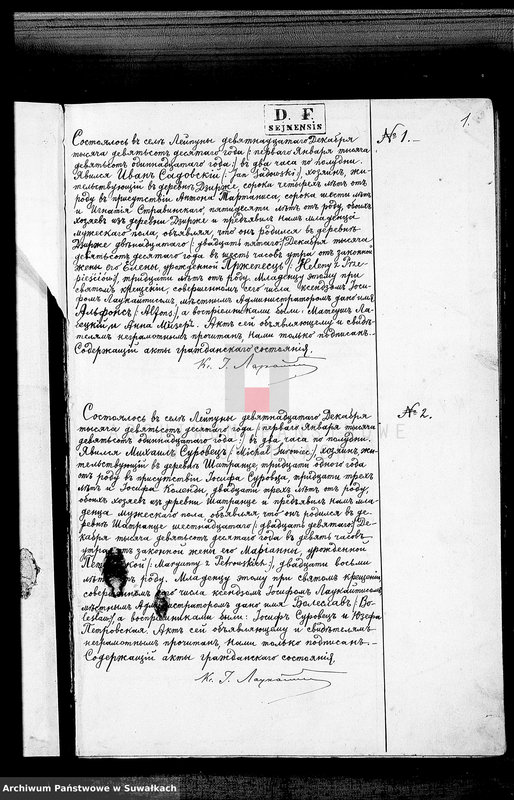 1.
D. F.
SEJNENSIS
№ 1.
Состоялось въ селѣ Лейпуны девятнадцатаго Декабря
тысяча девятьсотъ десятаго года /: перваго Января тысяча
девятьсотъ одиннадцатаго года :/ въ два часа по полудни.
Явился Иванъ Садовскій /: Jan Sadowski :/, хозяинъ, жи-
тельствующій въ деревнѣ Дзирже, сорока четырехъ лѣтъ отъ
роду въ присутствіи Антона Мартаписа, сорока шести лѣтъ
и Игнатія Стравинскаго, пятидесяти лѣтъ отъ роду, обоихъ
хозяевъ изъ деревни Дзирже и предъявилъ намъ младенца
мужескаго пола, объявляя, что онъ родился въ деревнѣ
Дзирже двѣнадцатаго /: двадцать пятаго :/ Декабря тысяча
девятьсотъ десятаго года въ шесть часовъ утра отъ законной
жены его Елены, урожденной /: Heleny z
тридцати лѣтъ отъ роду. Младенцу этому при
святомъ крещеніи, совершенномъ сего числа ксендзомъ Іоси-
фомъ Лаукайтисомъ, мѣстнымъ Администраторомъ дано имя
Альфонсъ /: Alfons :/, а воспріемниками были: Матеушъ
и Анна Мизеръ. Актъ сей объявляющему и свидѣ-
телямъ неграмотнымъ прочитанъ, Нами только подписанъ.-
Содержащій акты гражданскаго состоянія.
Кс. І. Лаукайтисъ
№ 2.
Состоялось въ селѣ Лейпуны девятнадцатаго Декабря
тысяча девятьсотъ десятаго года /: перваго Января тысяча
девятьсотъ одиннадцатаго года :/ въ два часа по полудни.
Явился Михаилъ Суровецъ /: Michał Surowiec :/, хозяинъ, жи-
тельствующій въ деревнѣ Шатранце, тридцати одного года
отъ роду въ присутствіи Іосифа Суровца, тридцати трехъ
лѣтъ и Іосифа Коленды, двадцати трехъ лѣтъ отъ роду,
обоихъ хозяевъ изъ деревни Шатранце и предъявилъ намъ мла-
денца мужескаго пола объявляя, что онъ родился въ де-
ревнѣ Шатранце шестнадцатаго /: двадцать девятаго :/ Де-
кабря тысяча девятьсотъ десятаго года въ девять часовъ
утра отъ законной жены его Маріанны, урожденной
/: Maryanny z Petrowskich :/, двадцати восьми
лѣтъ отъ роду. Младенцу этому при святомъ крещеніи,
совершенномъ сего числа ксендзомъ Іосифомъ Лаукайтисомъ
мѣстнымъ Администраторомъ дано имя Болеславъ /: Bo-
lesław :/, а воспріемниками были: Іосифъ Суровецъ и Юзефа
Петровская. Актъ сей объявляющему и свидѣтелямъ
неграмотнымъ прочитанъ, Нами только подписанъ.-
Содержащій акты гражданскаго состоянія,
Кс. І. Лаукайтисъ
Archiwum Państwowe w Suwałkach